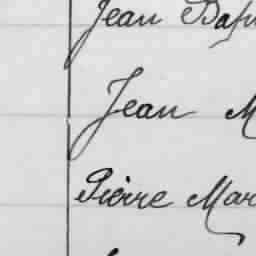 Jean Bap
Jean M
Pierre Mar